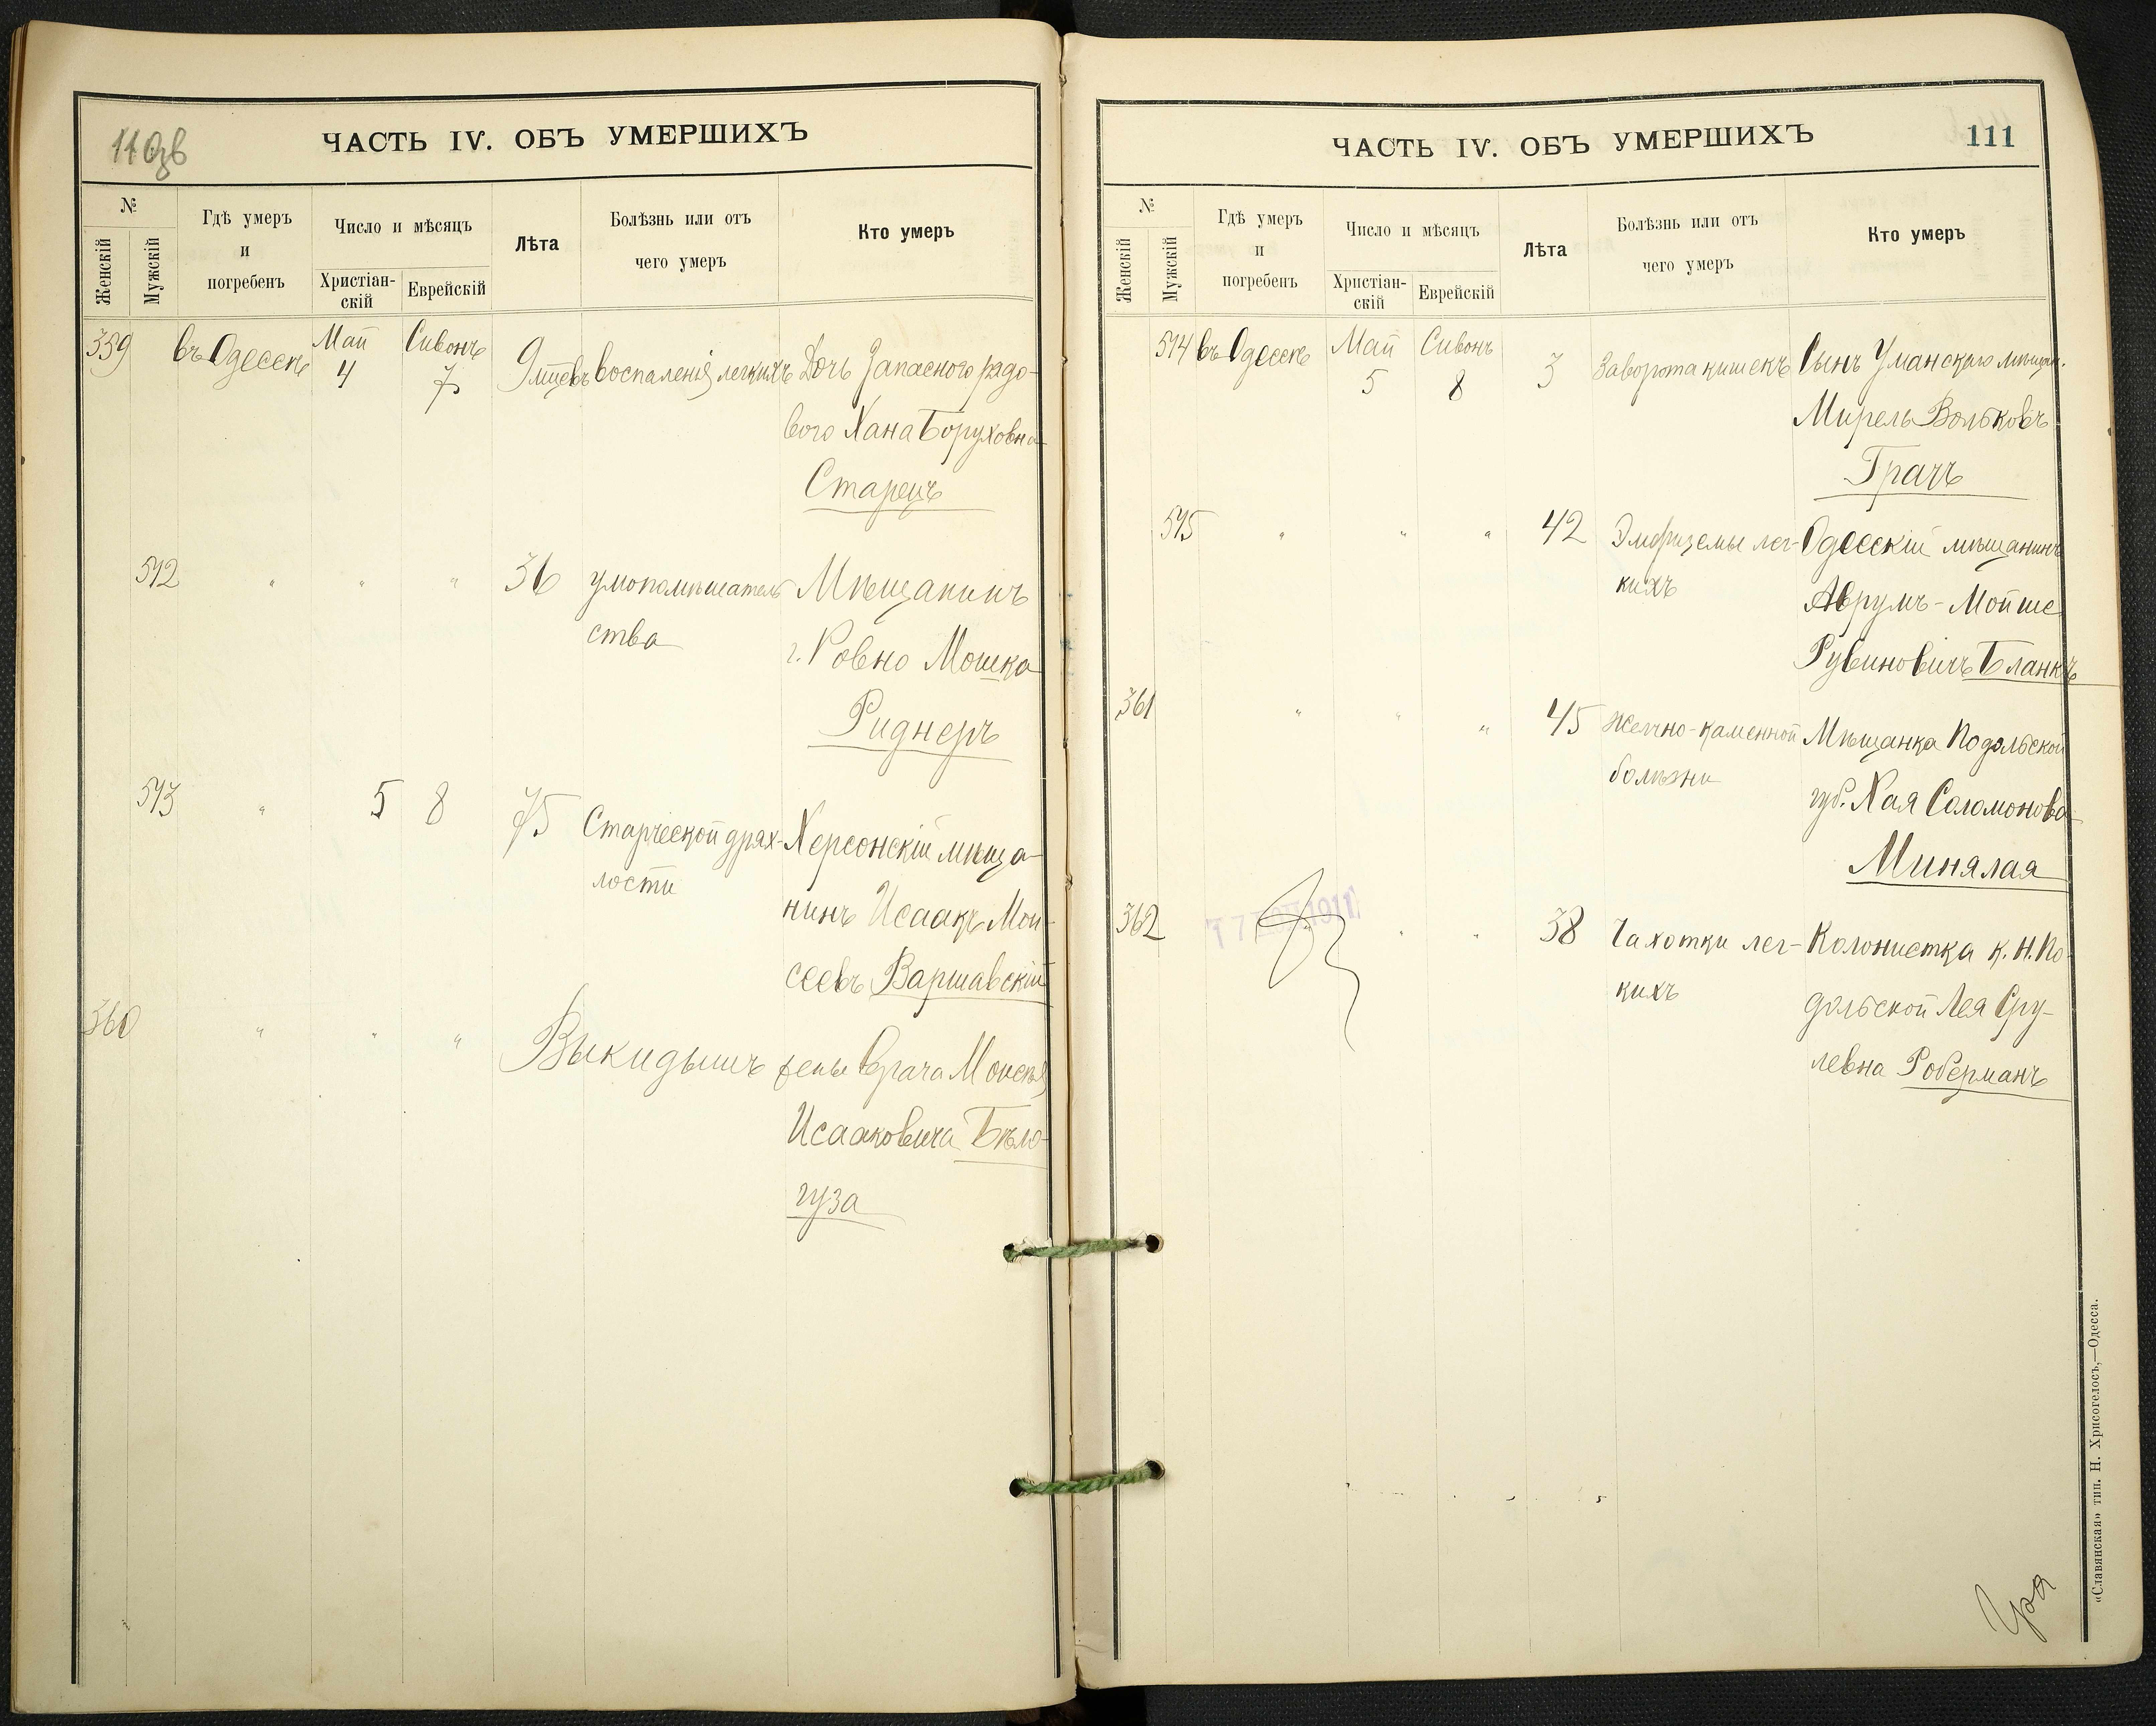 110зв
ЧАСТЬ IV. ОБЪ УМЕРШИХЪ
№
Женскій
Мужскій
Гдѣ умеръ
и
погребенъ
Число и мѣсяцъ
Христіан-
скій
Еврейскій
Лѣта
Болѣзнь или отъ
чего умеръ
Кто умеръ
359 въ Одессѣ Май 4 Сивонъ 7 9 мцевъ воспаленія легкихъ Дочь Запасного рядо-
вого Хана Боруховна
Старецъ
572 " " " 36 умопомѣшатель Мѣщанинъ
ства г. Ровно Мошка
Риднеръ
573 " 5 8 75 Старческой дрях- Херсонскій мѣща-
лости нинъ Исаакъ Мои-
сеевъ Варшавскій
360 " " " Выкидышъ жены Врача Моисея
Исааковича Бѣло-
гуза
ЧАСТЬ IV. ОБЪ УМЕРШИХЪ
111
№
Женскій
Мужскій
Гдѣ умеръ
и
погребенъ
Число и мѣсяцъ
Христіан-
скій
Еврейскій
Лѣта
Болѣзнь или отъ
чего умеръ
Кто умеръ
574 въ Одессѣ Май 5 Сивонъ 8 3 Заворота кишекъ Сынъ Уманскаго мѣщан.
Мирель Вольковъ
Грачъ
575 " " " 42 Эмфиземы лег- Одесскій мѣщанинъ
кихъ Аврумъ-Мойше
Рувиновичъ Бланкъ
361 " " " 45 Желчно-каменной Мѣщанка Подольской
болѣзни губ. Хая Соломонова
Минялая
362 " " 38 Чахотки лег- Колонистка к. Н. По-
кихъ дольской Лея Сру-
левна Роберманъ
1911
«Славянская» тип. Н. Хрисогелосъ,—Одесса.